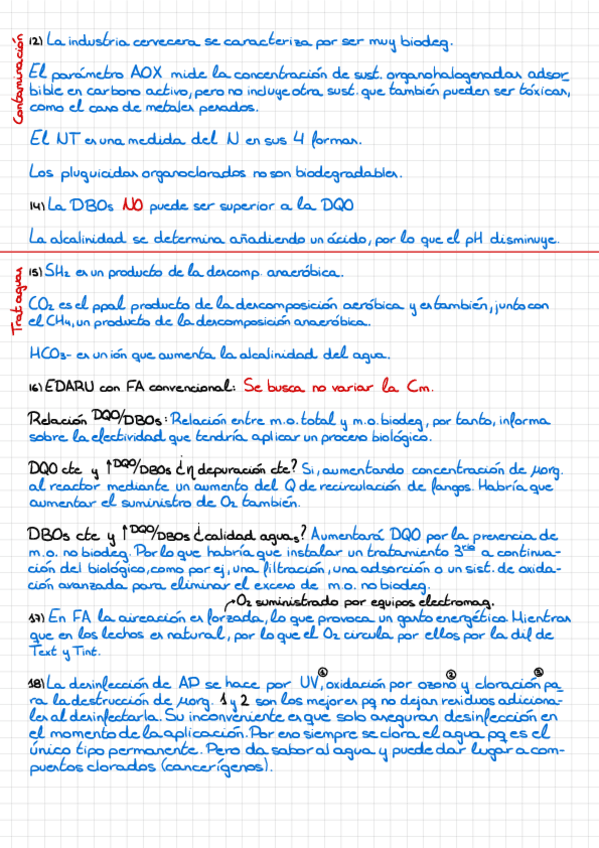 Contaminación
12) La industria cervecera se caracteriza por ser muy biodeg.
El parámetro AOX mide la concentración de sust. organohalogenadas adsor_
bible en carbono activo, pero no incluye otra sust. que también pueden ser tóxicas,
como el caso de metales pesados.
El NT es una medida del N en sus 4 formas.
Los pluguicidas organoclorados no son biodegradables.
14) La DBO₅ NO puede ser superior a la DQO
La alcalinidad se determina añadiendo un ácido, por lo que el pH disminuye.
Trat aguas
15) SH₂ es un producto de la descomp. anaeróbica.
CO₂ es el ppal producto de la descomposición aeróbica y es también, junto con
el CH₄, un producto de la descomposición anaeróbica.
HCO₃- es un ión que aumenta la alcalinidad del agua.
16) EDARU con FA convencional: Se busca no variar la Cm.
Relación DQO/DBO₅: Relación entre m.o. total y m.o. biodeg, por tanto, informa
sobre la efectividad que tendría aplicar un proceso biológico.
DQO cte y ↑DQO/DBO₅ ¿η depuración cte? Si, aumentando concentración de μorg.
al reactor mediante un aumento del Q de recirculación de fangos. Habría que
aumentar el suministro de O₂ también.
DBO₅ cte y ↑DQO/DBO₅ ¿calidad aguas? Aumentará DQO por la presencia de
m.o. no biodeg. Por lo que habría que instalar un tratamiento 3ᶜⁱᵒ a continua-
ción del biológico, como por ej, una filtración, una adsorción o un sist. de oxida-
ción avanzada para eliminar el exceso de m.o. no biodeg.
O₂ suministrado por equipos electromag.
17) En FA la aireación es forzada, lo que provoca un gasto energético. Mientras
que en los lechos es natural, por lo que el O₂ circula por ellos por la dif de
Text y Tint.
18) La desinfección de AP se hace por UV①, oxidación por ozono② y cloración③ pa_
ra la destrucción de μorg. 1 y 2 son los mejores pq no dejan residuos adiciona-
les al desinfectarla. Su inconveniente es que solo aseguran desinfección en
el momento de la aplicación. Por eso siempre se clora el agua pq es el
único tipo permanente. Pero da sabor al agua y puede dar lugar a com-
puestos clorados (cancerígenos).